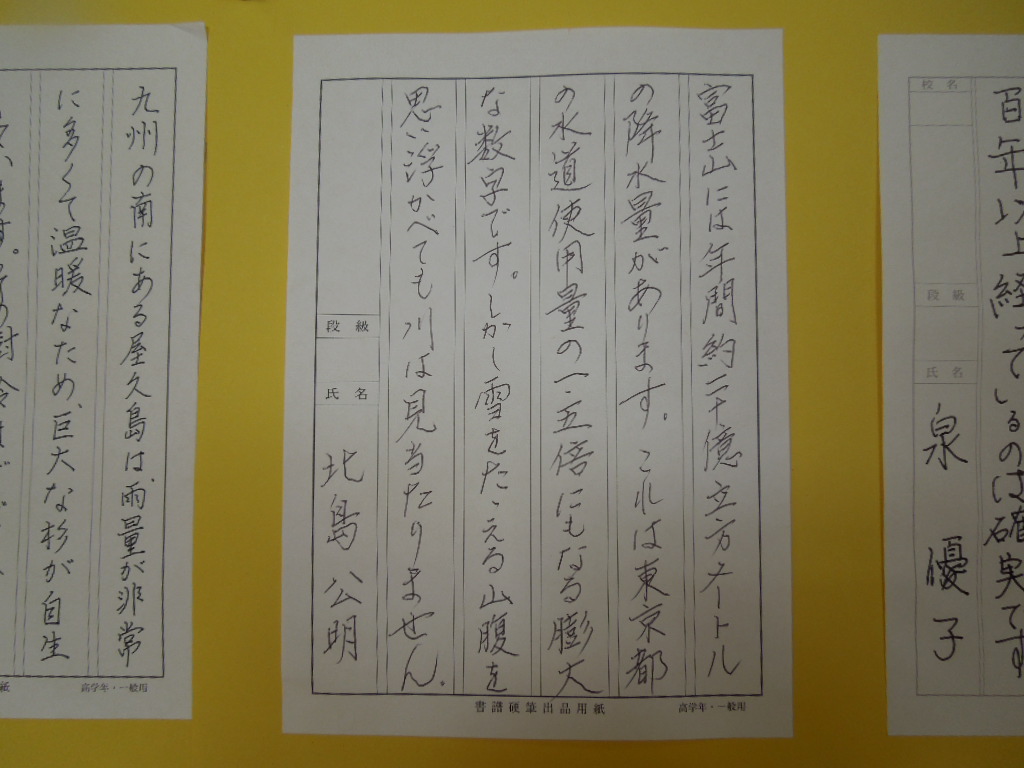 百年以上経っているのは確実です
校名
段級
氏名
泉優子
富士山には年間約二十億立方メートル
の降水量があります。これは東京都
の水道使用量の一・五倍にもなる膨大
な数字です。しかし雪をたゝえる山腹を
思い浮かべても川は見当たりません。
段級
氏名
北島公明
書譜硬筆出品用紙
高学年・一般用
九州の南にある屋久島は、雨量が非常
に多くて温暖なため、巨大な杉が自生
紙
高学年・一般用